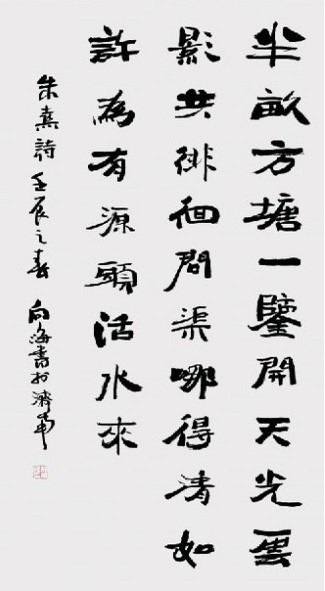 半畝方塘一鑒開天光雲
影共徘徊問渠哪得清如
許為有源頭活水來
朱熹詩壬辰之春向海書於濟南